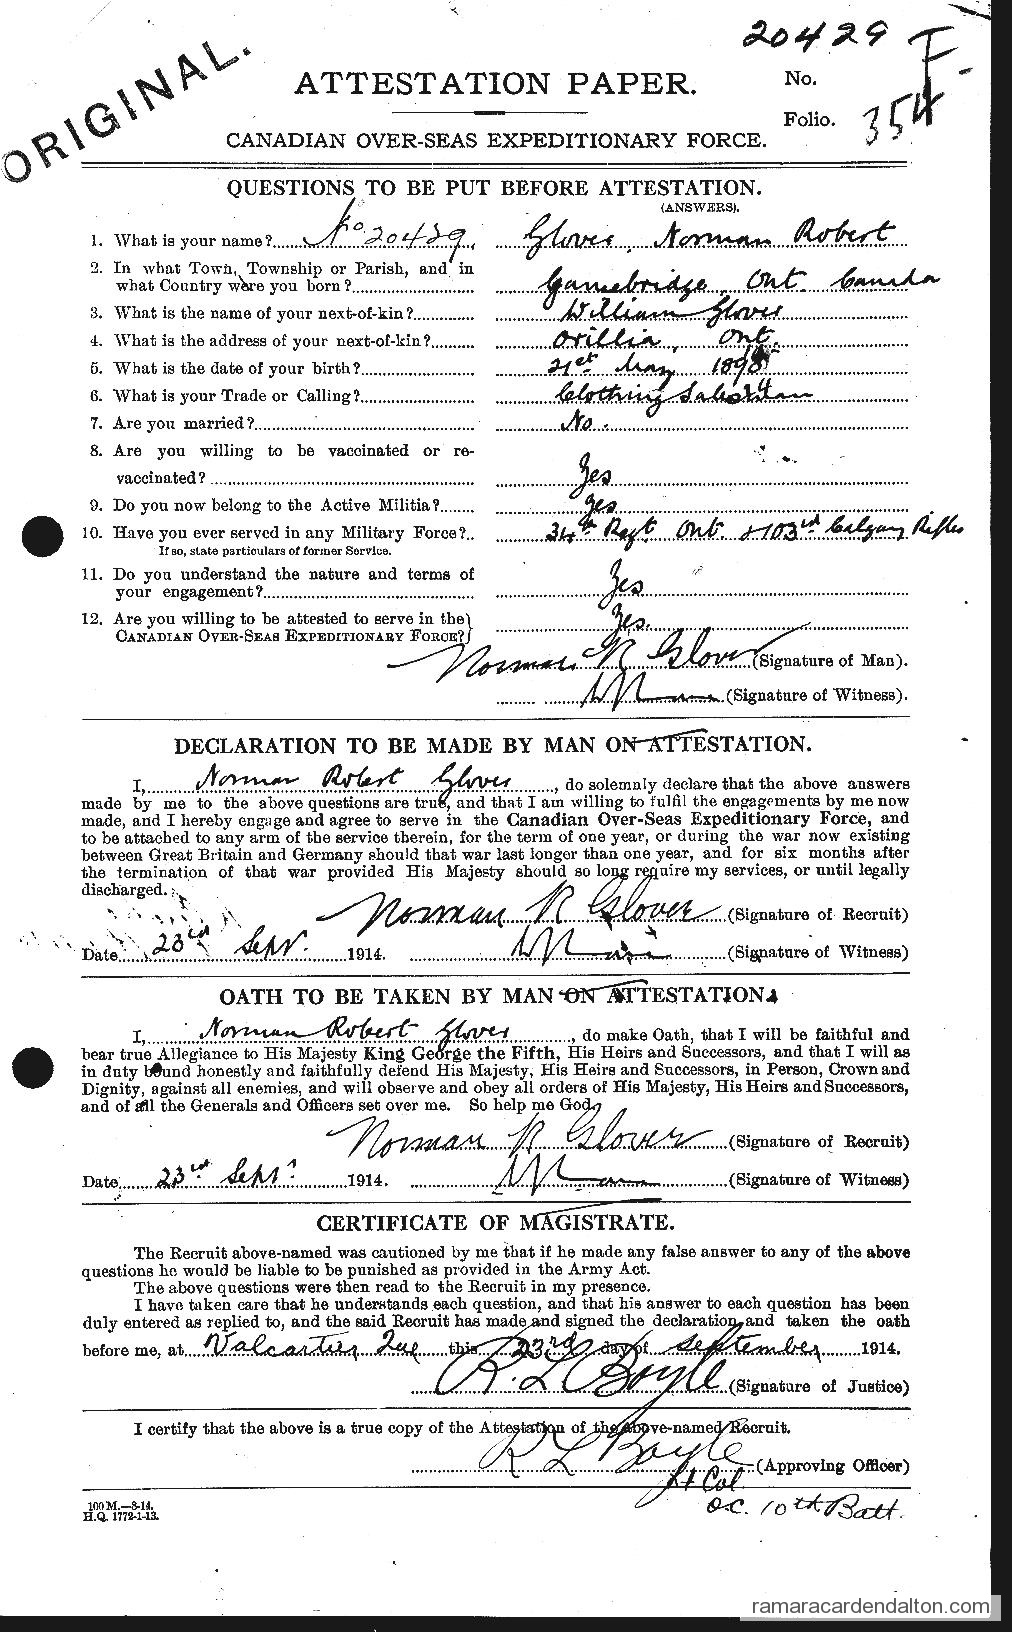 20429
F
ORIGINAL.
ATTESTATION PAPER.
No.
Folio. 354
CANADIAN OVER-SEAS EXPEDITIONARY FORCE.
QUESTIONS TO BE PUT BEFORE ATTESTATION.
(ANSWERS).
1. What is your name?...... No 20429, Glover, Norman Robert
2. In what Town, Township or Parish, and in
what Country were you born?...... Gamebridge, Ont. Canada
3. What is the name of your next-of-kin?...... William Glover
4. What is the address of your next-of-kin?...... Orillia, Ont.
5. What is the date of your birth?...... 21st May 189
6. What is your Trade or Calling?...... Clothing Salesman
7. Are you married?...... No.
8. Are you willing to be vaccinated or re-
vaccinated?...... Yes
9. Do you now belong to the Active Militia?...... Yes
10. Have you ever served in any Military Force?.. 34th Regt. Ont. & 103rd Calgary Rifles
If so, state particulars of former Service.
11. Do you understand the nature and terms of
your engagement?...... Yes
12. Are you willing to be attested to serve in the
CANADIAN OVER-SEAS EXPEDITIONARY FORCE? Yes.
Norman R Glover (Signature of Man).
(Signature of Witness).
DECLARATION TO BE MADE BY MAN ON ATTESTATION.
I, Norman Robert Glover, do solemnly declare that the above answers
made by me to the above questions are true, and that I am willing to fulfil the engagements by me now
made, and I hereby engage and agree to serve in the Canadian Over-Seas Expeditionary Force, and
to be attached to any arm of the service therein, for the term of one year, or during the war now existing
between Great Britain and Germany should that war last longer than one year, and for six months after
the termination of that war provided His Majesty should so long require my services, or until legally
discharged.
Norman R Glover (Signature of Recruit)
Date 23rd Sept. 1914. (Signature of Witness)
OATH TO BE TAKEN BY MAN ON ATTESTATION.
I, Norman Robert Glover, do make Oath, that I will be faithful and
bear true Allegiance to His Majesty King George the Fifth, His Heirs and Successors, and that I will as
in duty bound honestly and faithfully defend His Majesty, His Heirs and Successors, in Person, Crown and
Dignity, against all enemies, and will observe and obey all orders of His Majesty, His Heirs and Successors,
and of all the Generals and Officers set over me. So help me God.
Norman R Glover (Signature of Recruit)
Date 23rd Sept. 1914. (Signature of Witness)
CERTIFICATE OF MAGISTRATE.
The Recruit above-named was cautioned by me that if he made any false answer to any of the above
questions he would be liable to be punished as provided in the Army Act.
The above questions were then read to the Recruit in my presence.
I have taken care that he understands each question, and that his answer to each question has been
duly entered as replied to, and the said Recruit has made and signed the declaration and taken the oath
before me, at Valcartier Que this 23rd day of September 1914.
R. L Boyle (Signature of Justice)
I certify that the above is a true copy of the Attestation of the above-named Recruit.
R L Boyle (Approving Officer)
Lt Col
O.C. 10th Batt.
100 M.—8-14.
H.Q. 1772-1-13.
ramaracardendalton.com